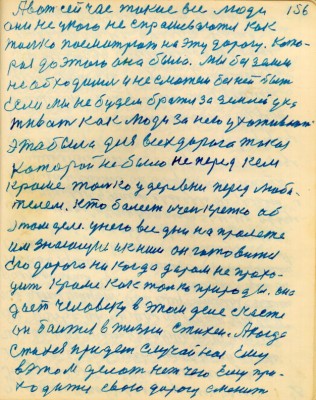 156
А вот сейчас такие все люди
они не у кого не спрашивают как
только посмотрят на эту дорогу. Кото-
рая до этого она была. Мы без земли
не обходимся и не сможем быть
если мы не будем брать за землёй уха
живать как люди за нею ухаживают
Эта была для всех дорога такая
которой не было не перед кем
кроме только у деревни перед любя-
телем. Кто болеет очен крепко об
этом деле у него все дни на пролете
им он готовится
Его дорога ни когда даром не прохо-
дит кроме как только природы. она
дает человеку в этом деле счасте
он боится в жизни стихеи. А когда
стихея придет случайная ему
в этом делать нечего ему при-
ходится свою дорогу сменит